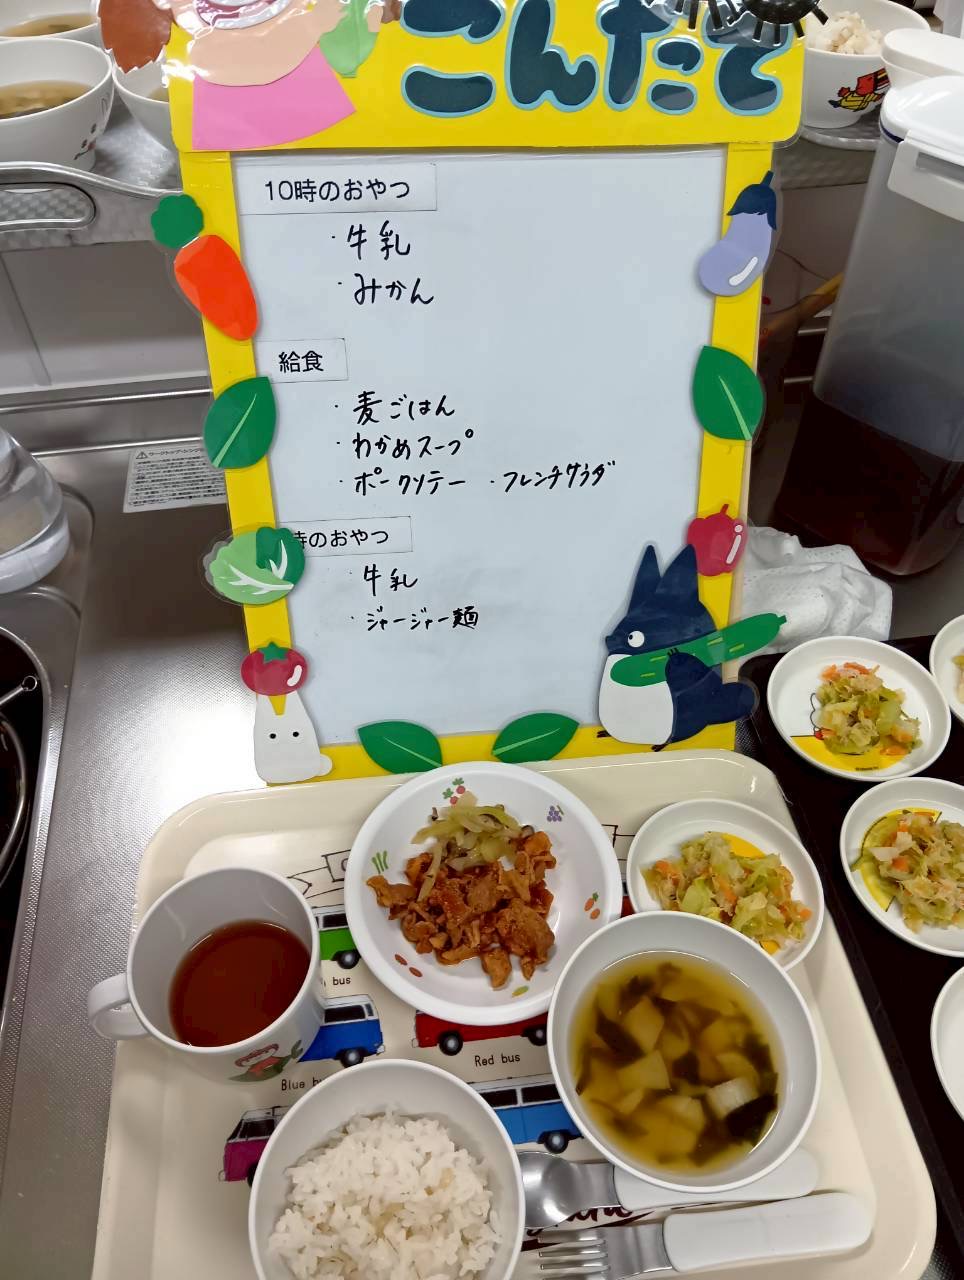 こんだて
10時のおやつ
・牛乳
・みかん
給食
・麦ごはん
・わかめスープ
・ポークソテー ・フレンチサラダ
時のおやつ
・牛乳
・ジャージャー麺
bus
Red bus
Blue bu